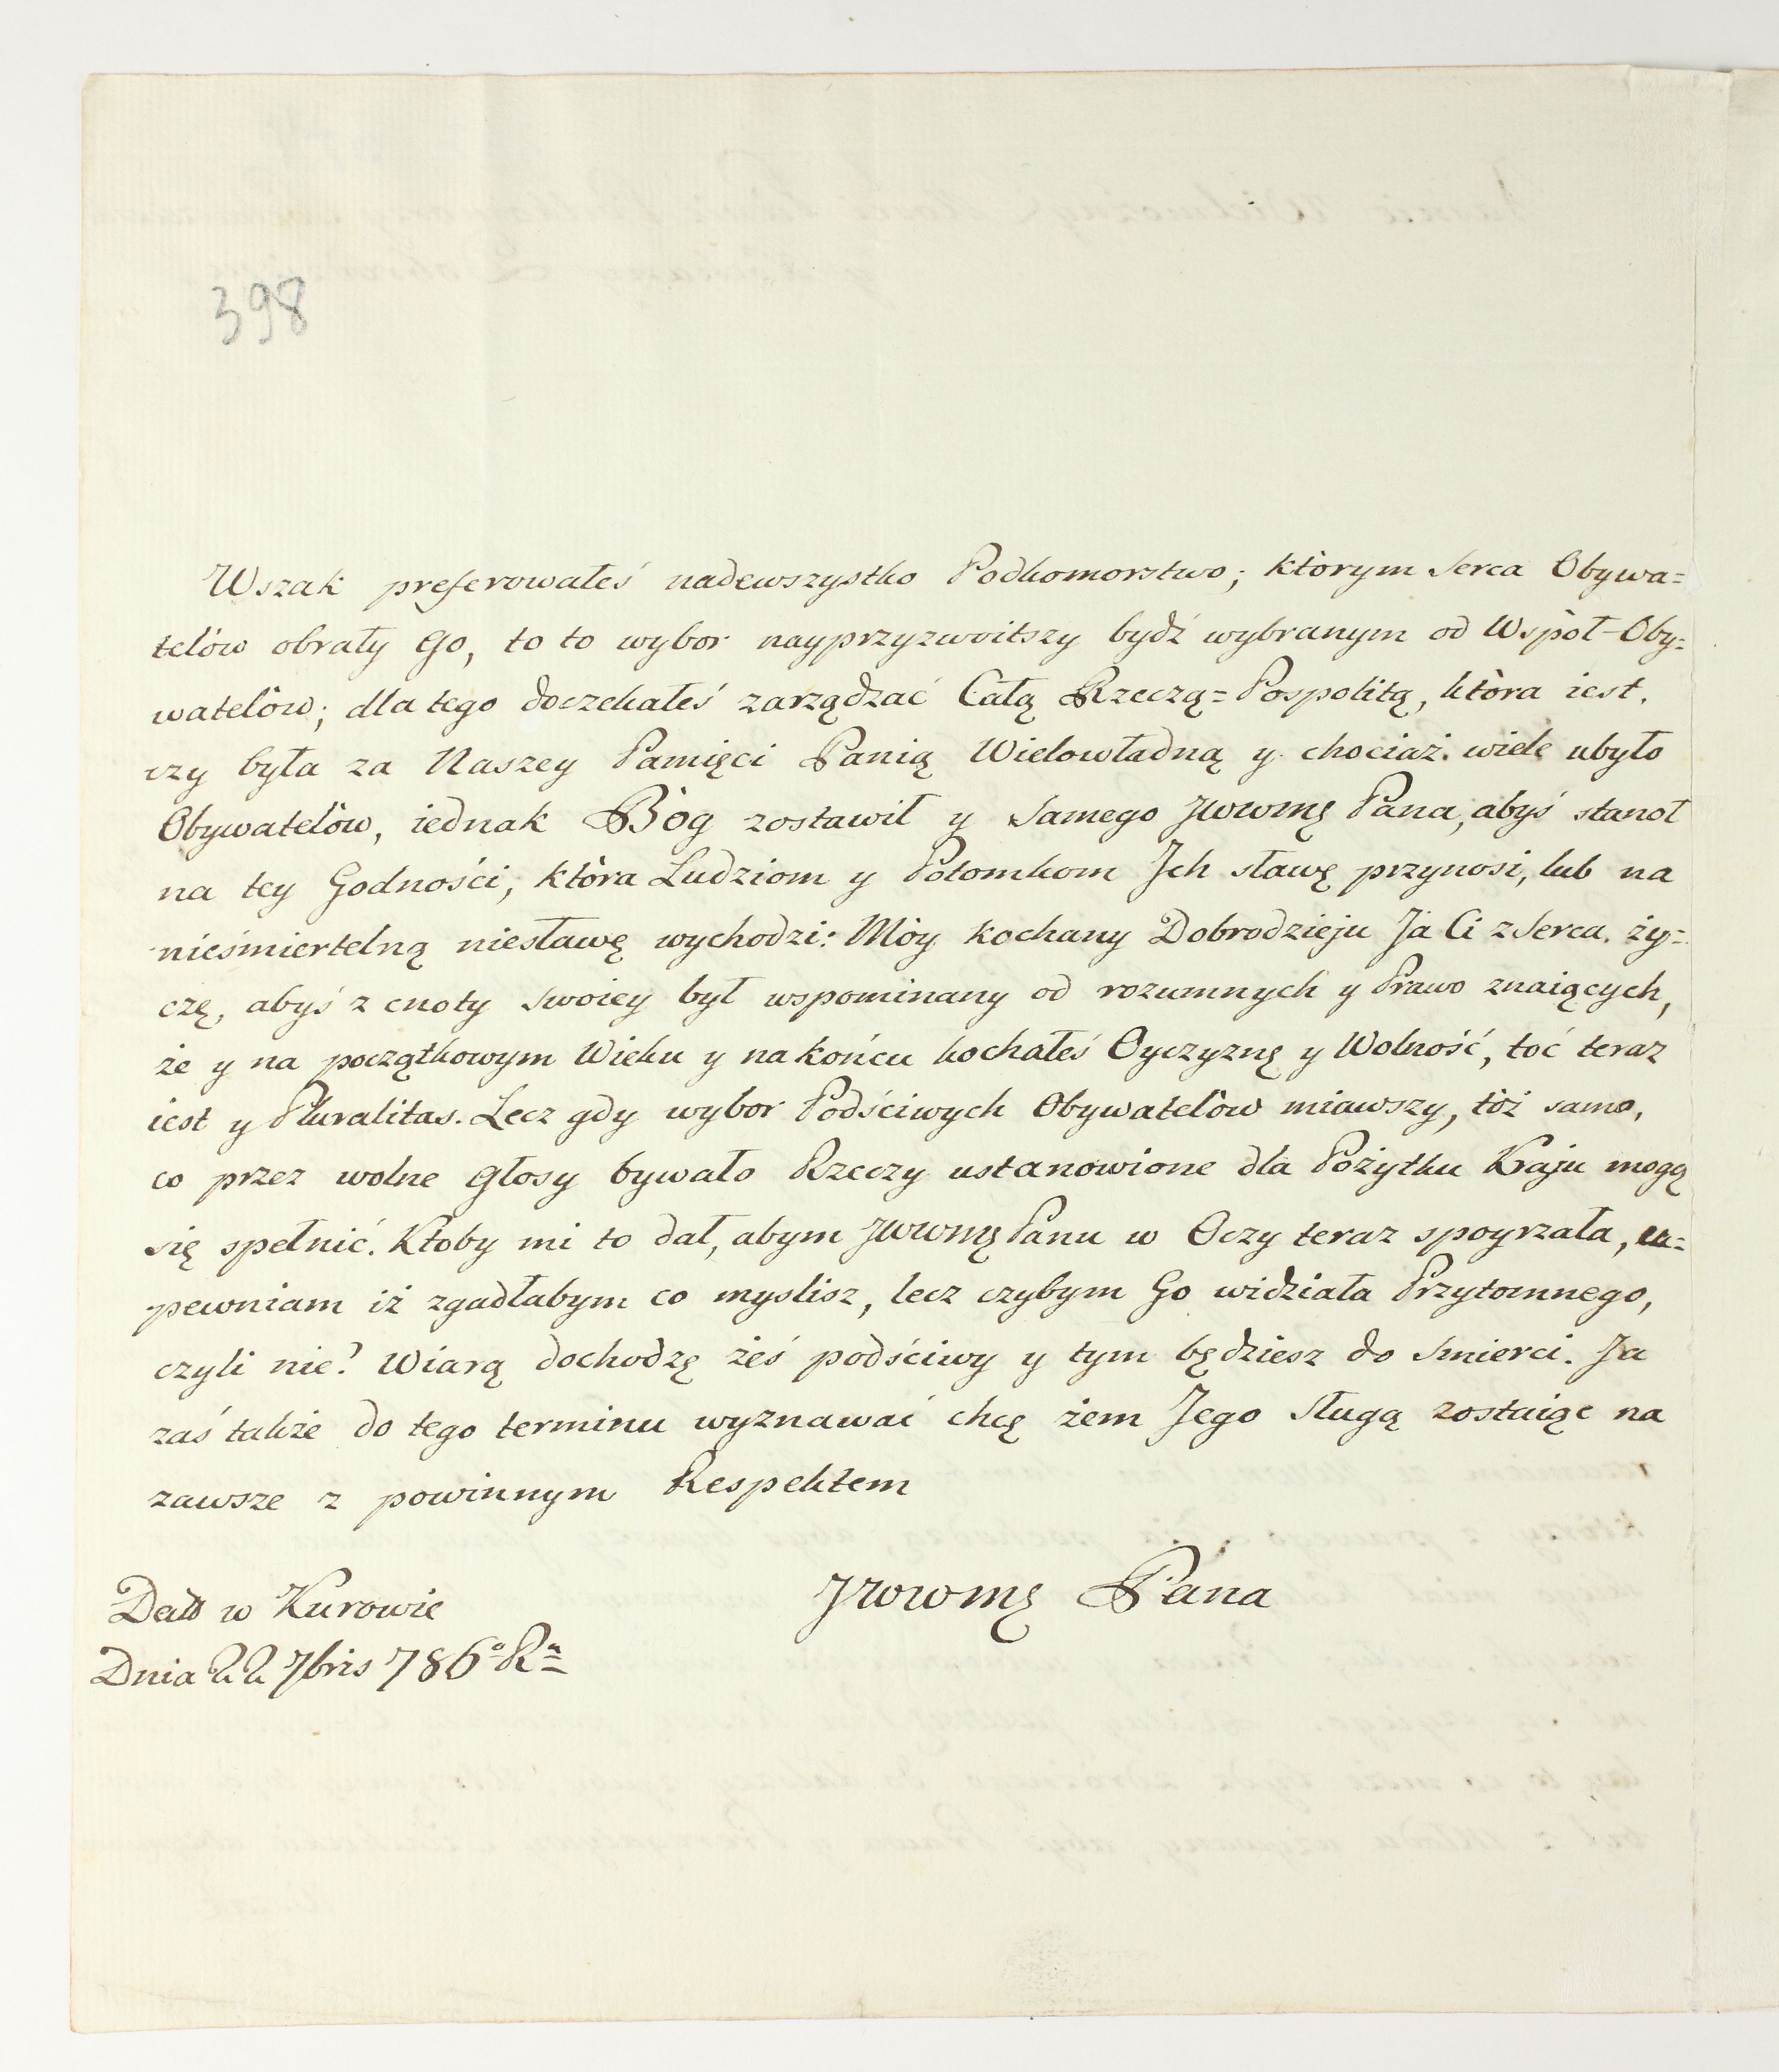 398
Wszak preferowałeś nadewszystko Podkomorstwo; którym Serca Obywa=
telów obrały Go, to to wybor nayprzyzwoitszy bydź wybranym od Wspòł-Oby=
watelòw; dla tego doczekałeś zarządzać Całą Rzeczą=Pospolitą, ktòra iest,
czy była za Naszey Pamięci Panią Wielowładną y chociaż wiele ubyło
Obywatelòw, iednak Bòg zostawił y Samego JWWMę Pana, abyś stanoł
na tey Godności, ktòra Ludziom y Potomkom Jch sławę przynosi, lub na
nieśmiertelną niesławę wychodzi: Mòy kochany Dobrodzieju Ja Ci z Serca ży=
czę, abyś z cnoty Swoiey był wspominany od rozumnych y Prawo znaiących,
że y na początkowym Wieku y na końcu kochałeś Oyczyznę y Wolność, toć teraz
iest y Pluralitas. Lecz gdy wybor Podściwych Obywatelòw miawszy, tòż samo,
co przez wolne Głosy bywało Rzeczy ustanowione dla Pożytku Kraju mogą
się spełnić. Ktoby mi to dał, abym JWWMę Panu w Oczy teraz spoyrzała, u=
pewniam iż zgadłabym co myslisz, lecz czybym Go widziała Przytomnego,
czyli nie? Wiarą dochodzę żeś podściwy y tym będziesz do Smierci. Ja
zaś także do tego terminu wyznawać chcę żem Jego Sługą zostaiąc na
zawsze z powinnym Respektem
JWWMę Pana
w Kurowie
Dnia 22 7bris 786o Ra